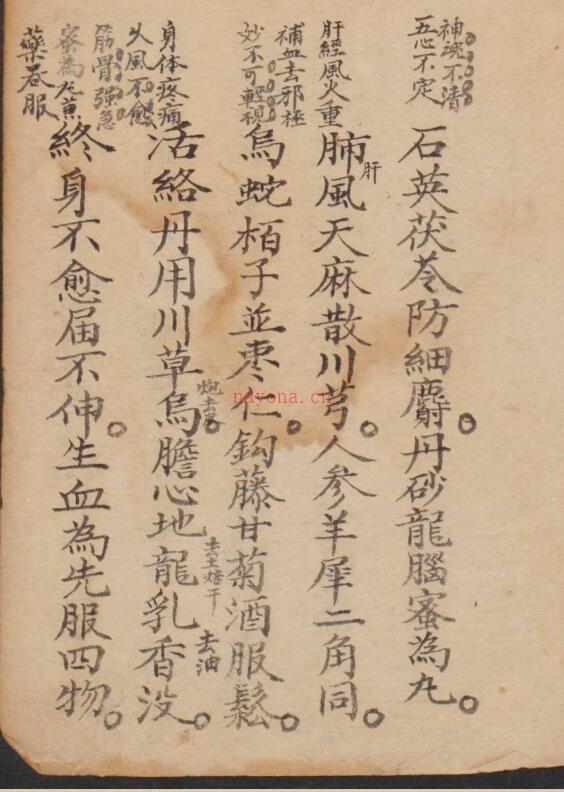 神魂不清
忢心不定
石英茯苓防細麝。丹砂龍腦蜜為丸。
肝經風火重
肺風天麻散川芎。人參羊犀二角同。
肝
補血去邪極
妙不可輕視
烏蛇栢子並枣仁。鈎藤甘菊酒服鬆。
身体疼痛
久風不愈
活絡丹用川草烏。膽心地龍乳香没。
炮去
去土焙干
去油
筋骨强急
蜜為丸蕉
藥吞服
終身不愈屈不伸。生血為先服四物。
nayona.cn